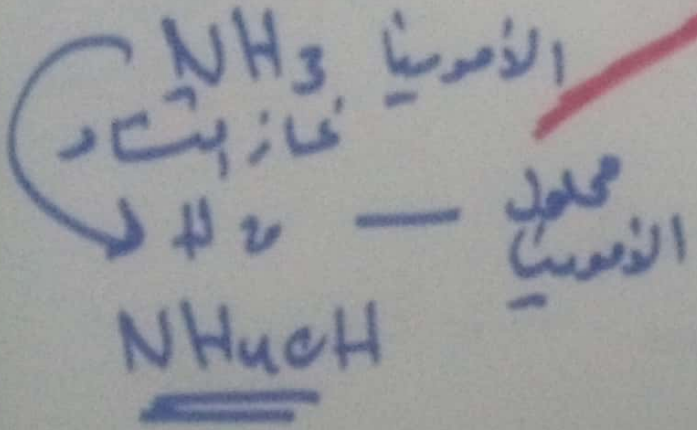 NH3 الأمونيا
غاز النشادر
H2O — محلول
الأمونيا
NH4OH